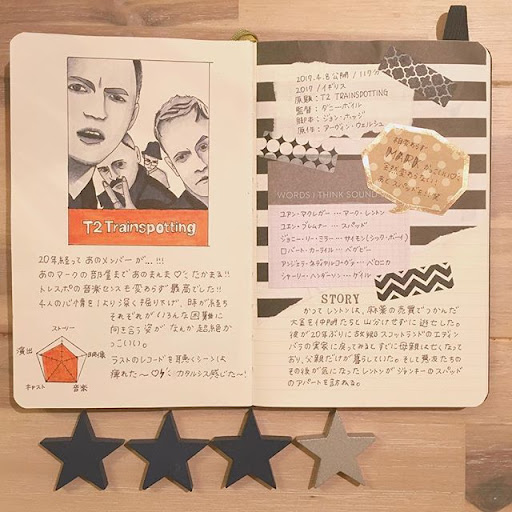 T2 Trainspotting
20年経ってあのメンバーが...!!!
あのマークの部屋まであのまんま♡で たかまる!!
トレスポの音楽センスも変わらず最高でした!!
4人の心情をより深く掘り下げ、時が経ち
それぞれがくらしと困難に
向き合う姿がなんか結局
かっこいい。
ストーリー
演出
映像
キャスト
音楽
ラストのレコードを聴くシーンは
痺れた〜♡ カタルシス感じた〜!
2017.4.8 公開 / 117分
2017 / イギリス
原題:T2 TRAINSPOTTING
監督:ダニー・ボイル
脚本:ジョン・ホッジ
原作:アーヴィン・ウェルシュ
相変わらず
MARKが
WORDS I THINK SOUND
ユアン・マクレガー…マーク・レントン
ユエン・ブレムナー…スパッド
ジョニー・リー・ミラー…サイモン(シック・ボーイ)
ロバート・カーライル…ベグビー
アンジェラ・ネディヤルコーヴァ…ベロニカ
シャーリー・ヘンダーソン…ゲイル
STORY
かつてレントンは、麻薬の売買でつかんだ
大金を仲間たちと山分けせずに逃亡した。
彼が20年ぶりに故郷スコットランドのエディン
バラの実家に戻ってみるとすでに母親は亡くなって
おり、父親だけが暮らしていた。そして悪友たちの
その後が気になったレントンがジャンキーのスパッド
のアパートを訪ねる。